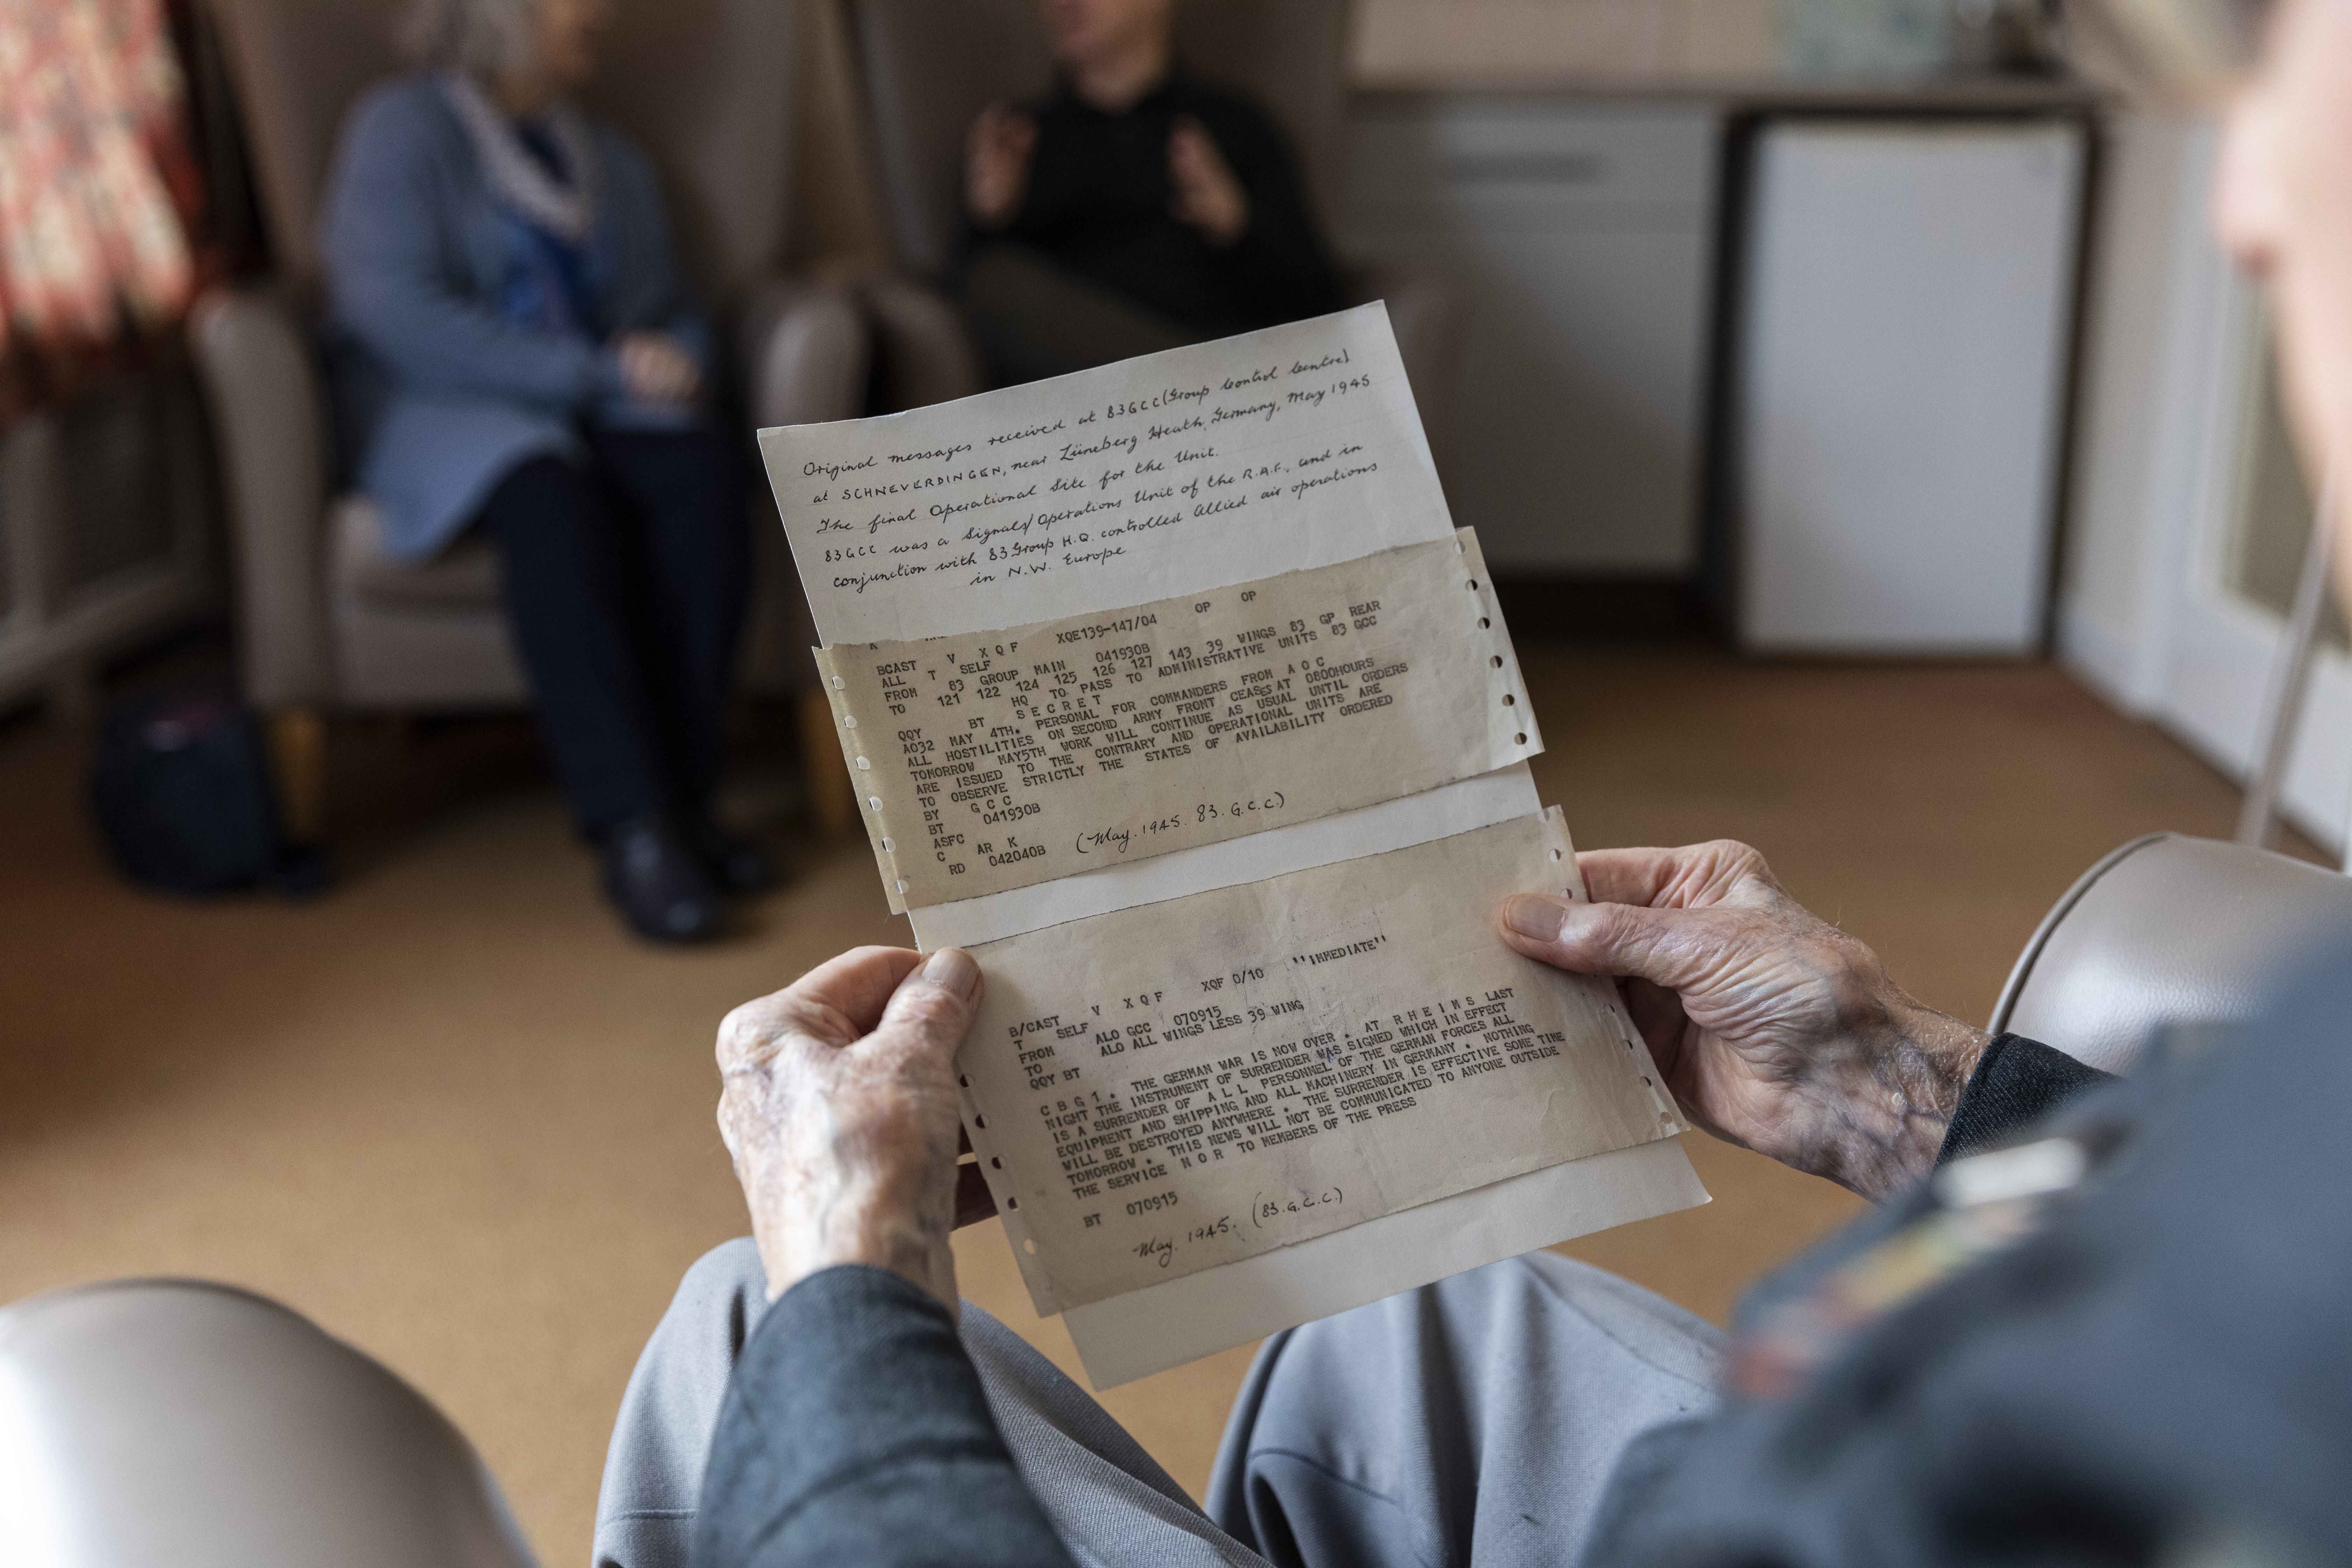 Original messages received at 83GCC (Group Control Centre)
at SCHNEVERDINGEN, near Lüneberg Heath, Germany, May 1945
The final Operational Site for the Unit.
83GCC was a Signals/Operations Unit of the R.A.F., and in
conjunction with 83 Group H.Q. controlled Allied air operations
in N.W. Europe
K
BCAST V XQF XQE139-147/04 OP OP
ALL T SELF
FROM 83 GROUP MAIN 041930B
TO 121 122 124 125 126 127 143 39 WINGS 83 GP REAR
HQ TO PASS TO ADMINISTRATIVE UNITS 83 GCC
QQY BT SECRET
A032 MAY 4TH. PERSONAL FOR COMMANDERS FROM A O C
ALL HOSTILITIES ON SECOND ARMY FRONT CEASES AT 0800HOURS
TOMORROW MAY5TH WORK WILL CONTINUE AS USUAL UNTIL ORDERS
ARE ISSUED TO THE CONTRARY AND OPERATIONAL UNITS ARE
TO OBSERVE STRICTLY THE STATES OF AVAILABILITY ORDERED
BY G C C
BT 041930B
ASFC
C AR K
RD 042040B
(May. 1945. 83. G.C.C.)
B/CAST V XQF XQF 0/10 ''IMMEDIATE''
T SELF
FROM ALO GCC 070915
TO ALO ALL WINGS LESS 39 WING
QQY BT
C B G 1 . THE GERMAN WAR IS NOW OVER . AT R H E I M S LAST
NIGHT THE INSTRUMENT OF SURRENDER WAS SIGNED WHICH IN EFFECT
IS A SURRENDER OF A L L PERSONNEL OF THE GERMAN FORCES ALL
EQUIPMENT AND SHIPPING AND ALL MACHINERY IN GERMANY . NOTHING
WILL BE DESTROYED ANYWHERE . THE SURRENDER IS EFFECTIVE SOME TIME
TOMORROW . THIS NEWS WILL NOT BE COMMUNICATED TO ANYONE OUTSIDE
THE SERVICE N O R TO MEMBERS OF THE PRESS
BT 070915
May. 1945. (83.G.C.C.)